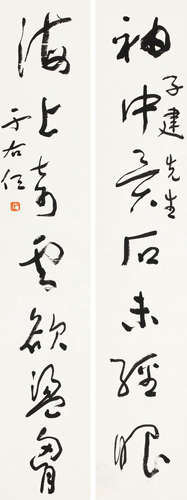 袖中异石未经眼
子建先生
海上奇云欲荡胸
于右任